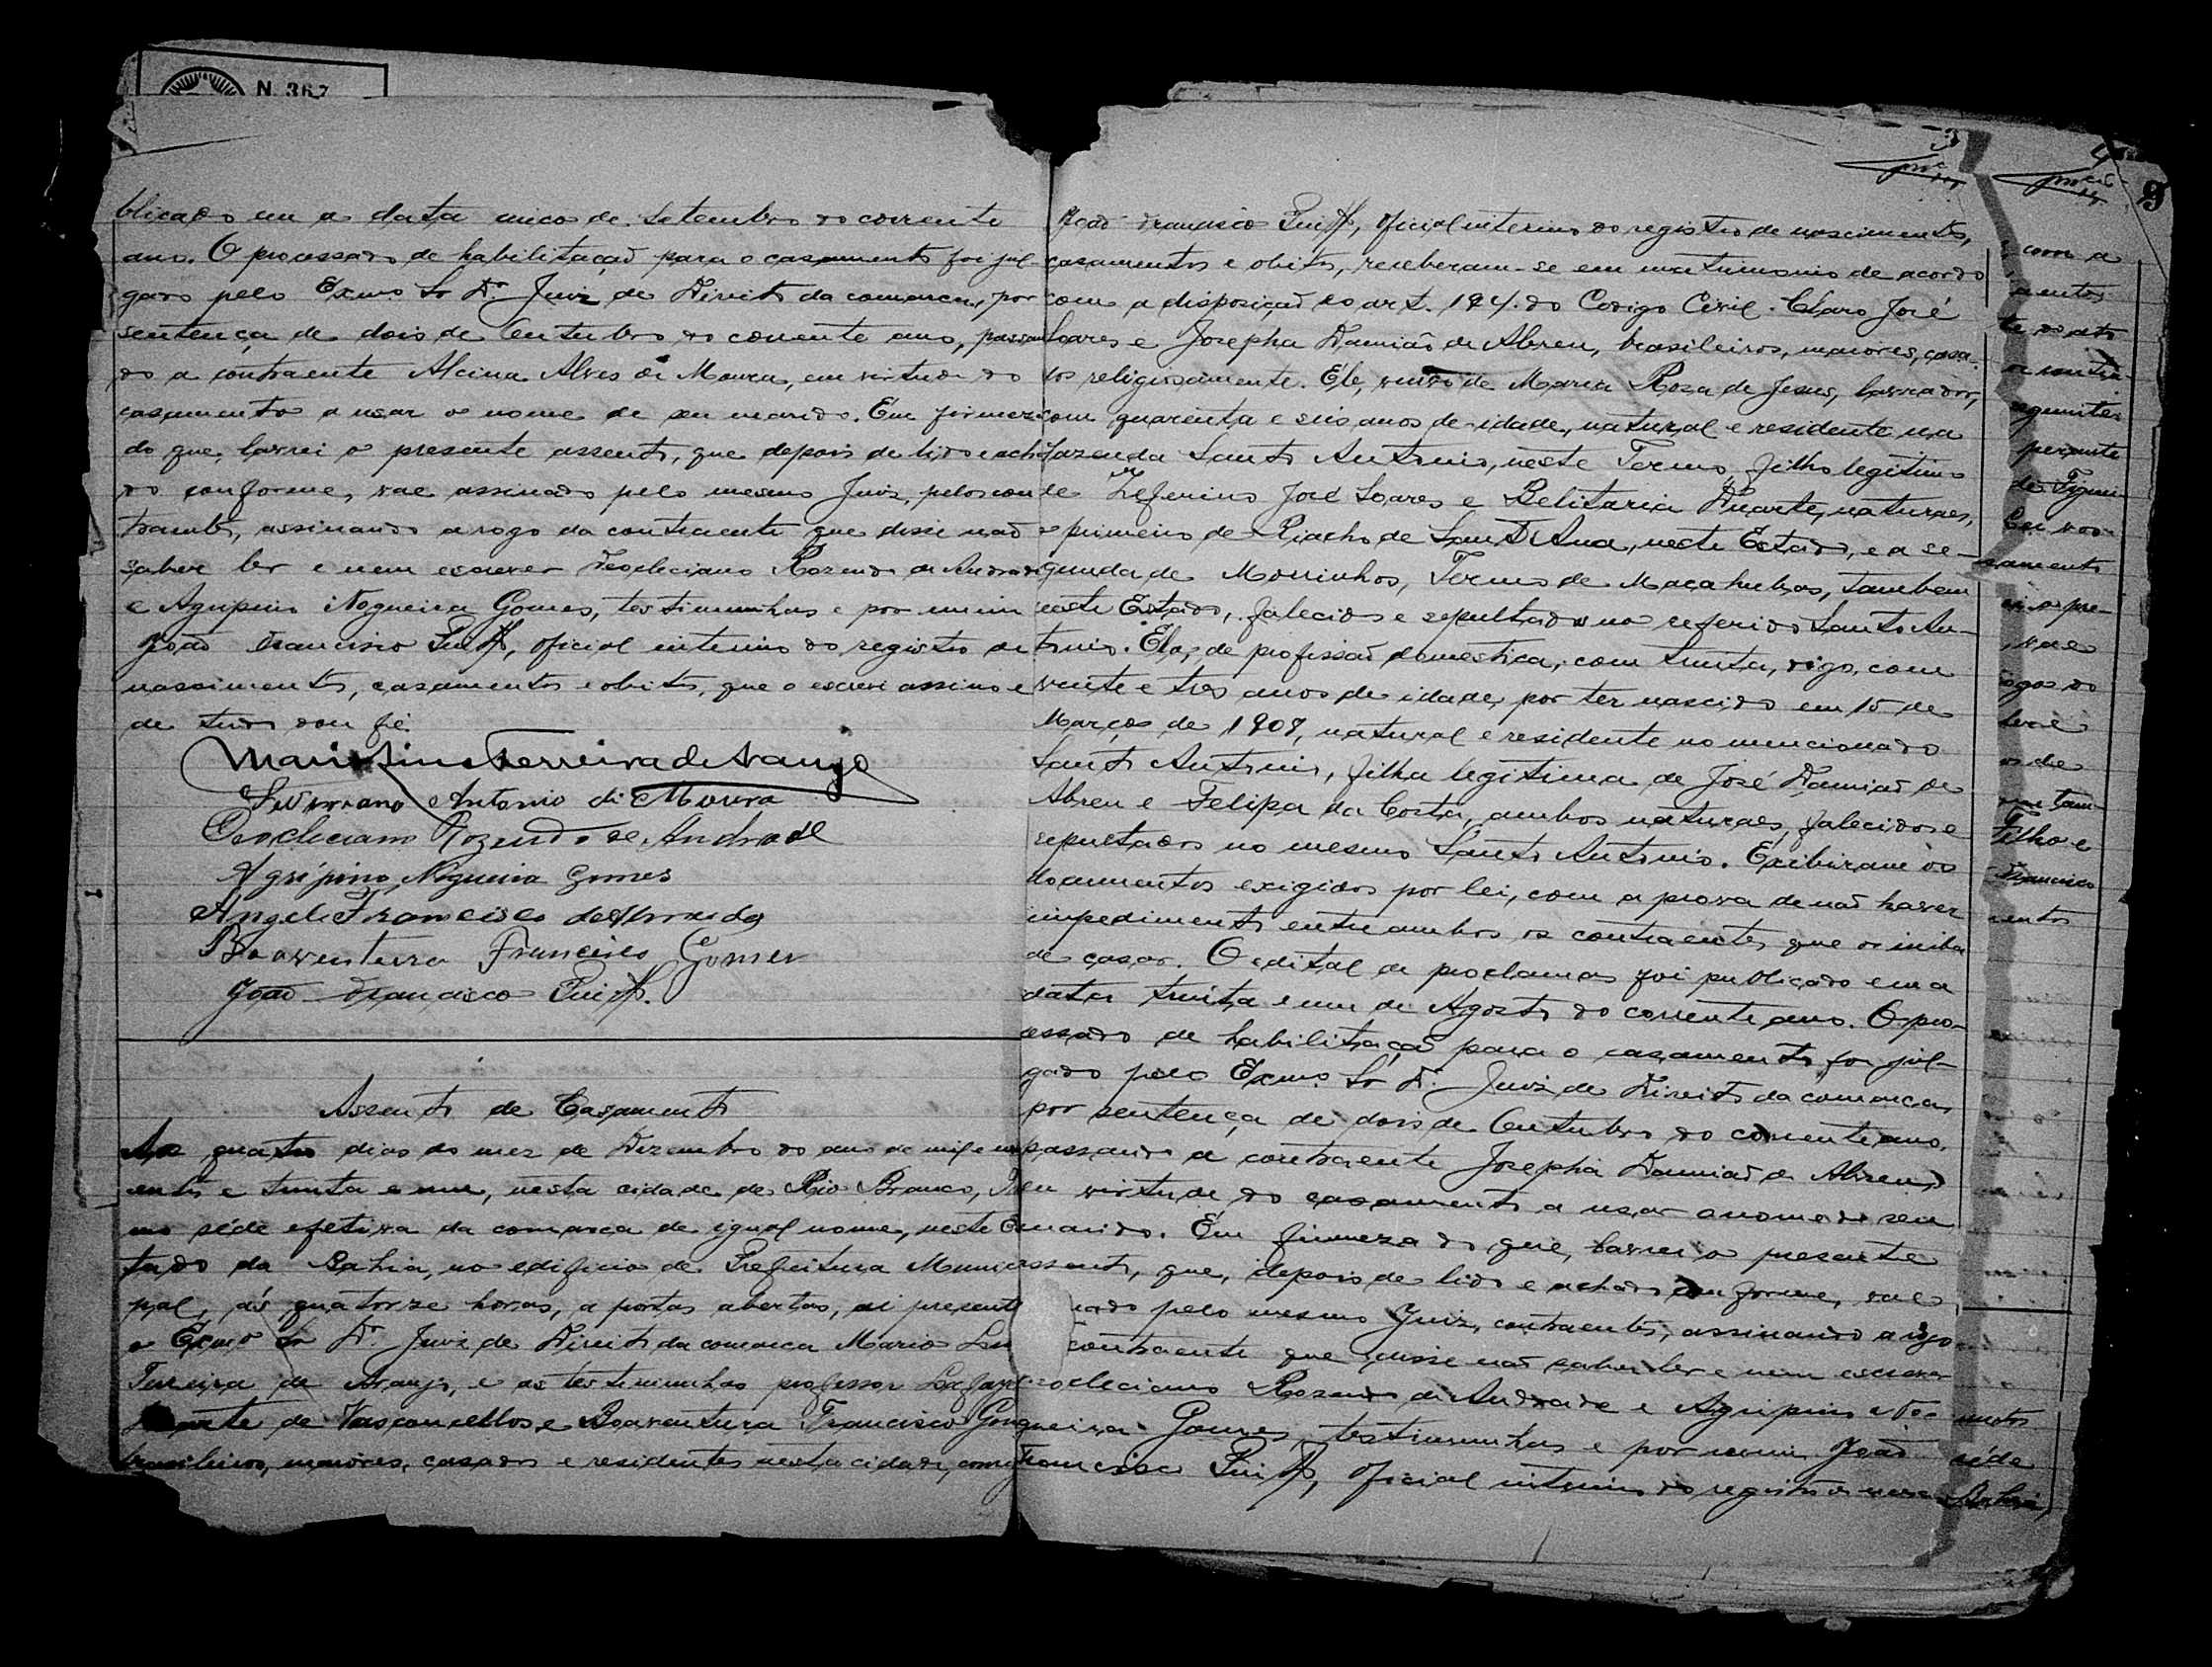 N. 367
blicado em a data cinco de Setembro do corrente
ano. O processado de habilitação para o casamento foi jul-
gado pelo Exmo Sr Dr Juiz de Direito da comarca, por
sentença de dois de Outubro do corrente ano, passan
do a contraente Alcina Alves de Moura, em virtude do
casamento a usar o nome de seu marido. Em firmeza
do que, lavrei o presente assento, que depois de lido e acha
do conforme, vae assinado pelo mesmo Juiz, pelos con
traentes, assinando a rogo da contraente que disse não
saber ler e nem escrever Deocleciano Rozendo de Andrade
e Agripino Nogueira Gomes, testimunhas e por mim
João Francisco, oficial interino do registro de
nascimentos, casamentos e obitos, que o escrevi assino e
de tudo dou fé.
Mario Lins Ferreira de Araujo
Severiano Antonio di Moura
Deocleciano Rozendo de Andrade
Agripino Nogueira Gomes
Angelo Francisco de Almeida
Boaventura Francisco Gomes
João Francisco
Assento de Casamento
Aos quatro dias do mez de Dezembro do ano de mil e nov
ecentos e trinta e um, nesta cidade de Rio Branco, Ter
mo séde efetiva da comarca de igual nome, neste Es
tado da Bahia, no edificio de Prefeitura Munici
pal, ás quatorze horas, a portas abertas, ai presente
o Exmo Sr Dr Juiz de Direito da comarca Mario Lins
Ferreira de Araujo, e as testimunhas professor
de Vasconcellos e Boaventura Francisco Gomes
brasileiros, maiores, casados e residentes nesta cidade, comigo
3
João Francisco, oficial interino do registro de nascimentos,
casamentos e obitos, receberam-se em matrimonio de acordo
com a disposição do art. 194. do Codigo Civil. Claro José
Soares e Josepha Damião de Abreu, brasileiros, maiores, casa-
dos religiosamente. Ele, viuvo de Maria Roza de Jesus, lavrador,
com quarenta e seis anos de idade, natural e residente na
fazenda Santo Antonio, neste Termo, filho legitimo
de Zeferino José Soares e Belitaria Duarte, naturaes,
o primeiro de Riacho de Sant'Ana, neste Estado, e a se-
gunda de Morrinhos, Termo de Macahubas, tambem
neste Estado, falecidos e sepultados no referido Santo An-
tonio. Ela, de profissão domestica, com trinta, digo, com
vinte e tres anos de idade, por ter nascido em 15 de
Março de 1908, natural e residente no mencionado
Santo Antonio, filha legitima de José Damião de
Abreu e Felipa da Costa, ambos naturaes, falecidos e
sepultados no mesmo Santo Antonio. Exibiram os
documentos exigidos por lei, com a prova de não haver
impedimento entre ambos os contraentes que os iniba
de casar. O edital de proclamas foi publicado em a
data trinta e um de Agosto do corrente ano. O pro-
cessado de habilitação para o casamento foi jul-
gado pelo Exmo Sr Dr Juiz de Direito da comarca,
por sentença de dois de Outubro do corrente ano,
passando a contraente Josepha Damião de Abreu,
em virtude do casamento a usar o nome de seu
marido. Em firmeza do que, lavrei o presente
assento, que, depois de lido e achado conforme, vae
pelo mesmo Juiz, contraentes, assinando a rogo
contraente que disse não saber ler e nem escrever
Deocleciano Rozendo de Andrade e Agripino No-
gueira Gomes, testimunhas e por mim João
Francisco, oficial interino do registro de
4
9
com a
tambem
Filho e
Francisco
séde
Bahia,